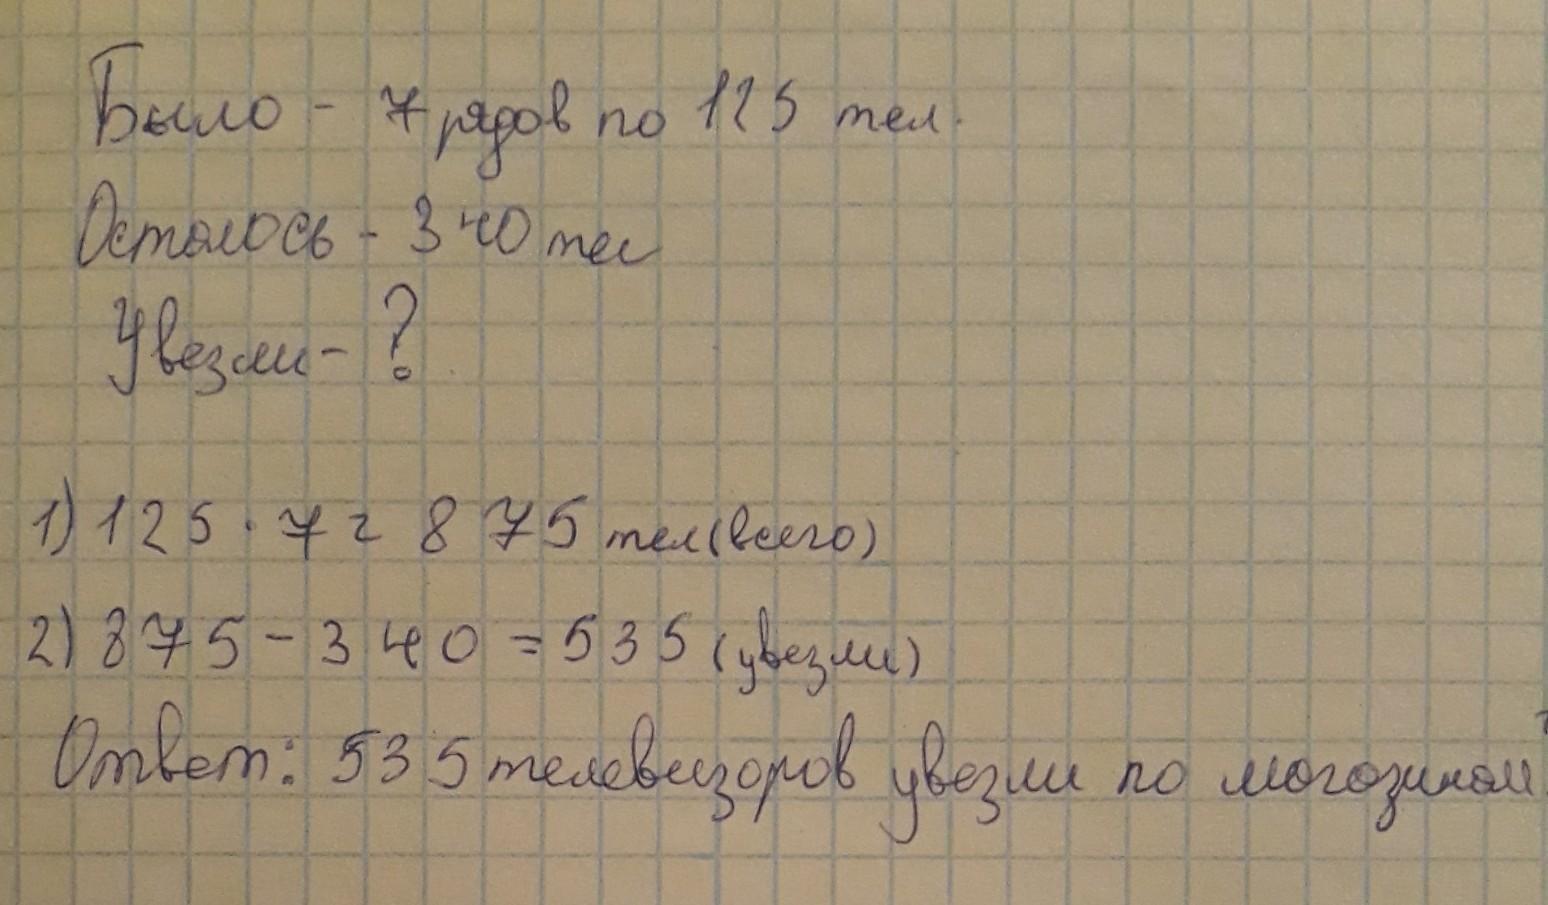 Было - 7 рядов по 125 тел.
Осталось - 340 тел
Увезли - ?
1) 125 · 7 = 875 тел (всего)
2) 875 - 340 = 535 (увезли)
Ответ: 535 телевизоров увезли по могозинам